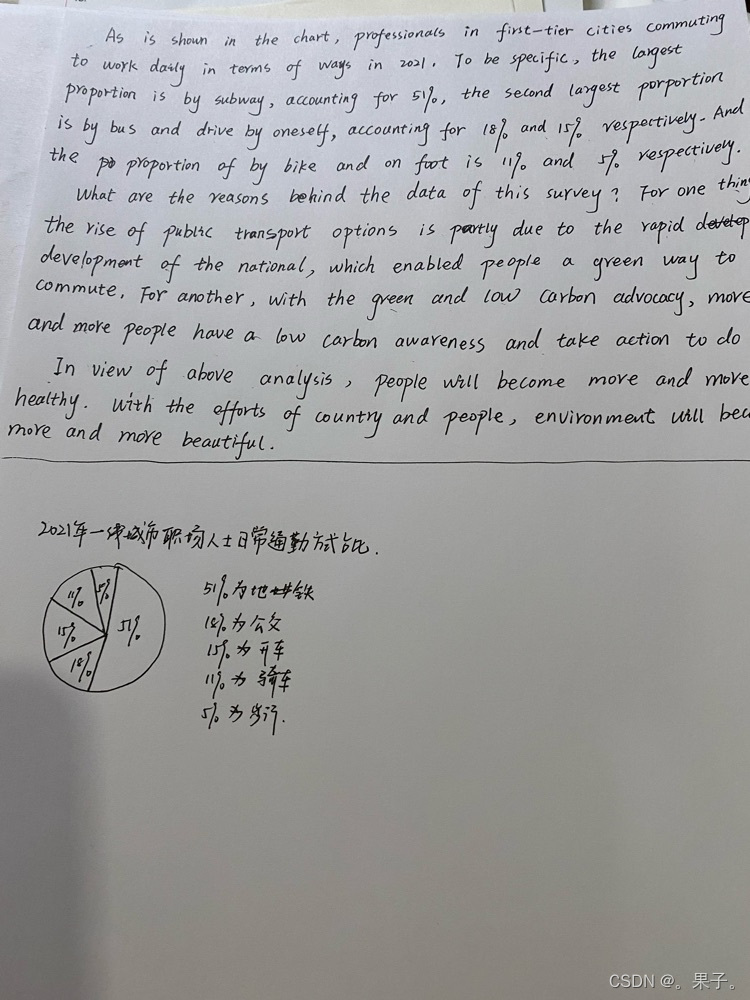 As is shown in the chart, professionals in first-tier cities commuting
to work daily in terms of ways in 2021. To be specific, the largest
proportion is by subway, accounting for 51%, the second largest porportion
is by bus and drive by oneself, accounting for 18% and 15% respectively. And
the proportion of by bike and on foot is 11% and 5% respectively.
What are the reasons behind the data of this survey? For one thing
the rise of public transport options is partly due to the rapid develop
development of the national, which enabled people a green way to
commute. For another, with the green and low carbon advocacy, more
and more people have a low carbon awareness and take action to do
In view of above analysis, people will become more and more
healthy. With the efforts of country and people, environment will bec
more and more beautiful.
2021年一线城市职场人士日常通勤方式占比.
11% 5%
15% 51%
18%
51%为地铁
18%为公交
15%为开车
11%为骑车
5%为步行.
CSDN @。果子。